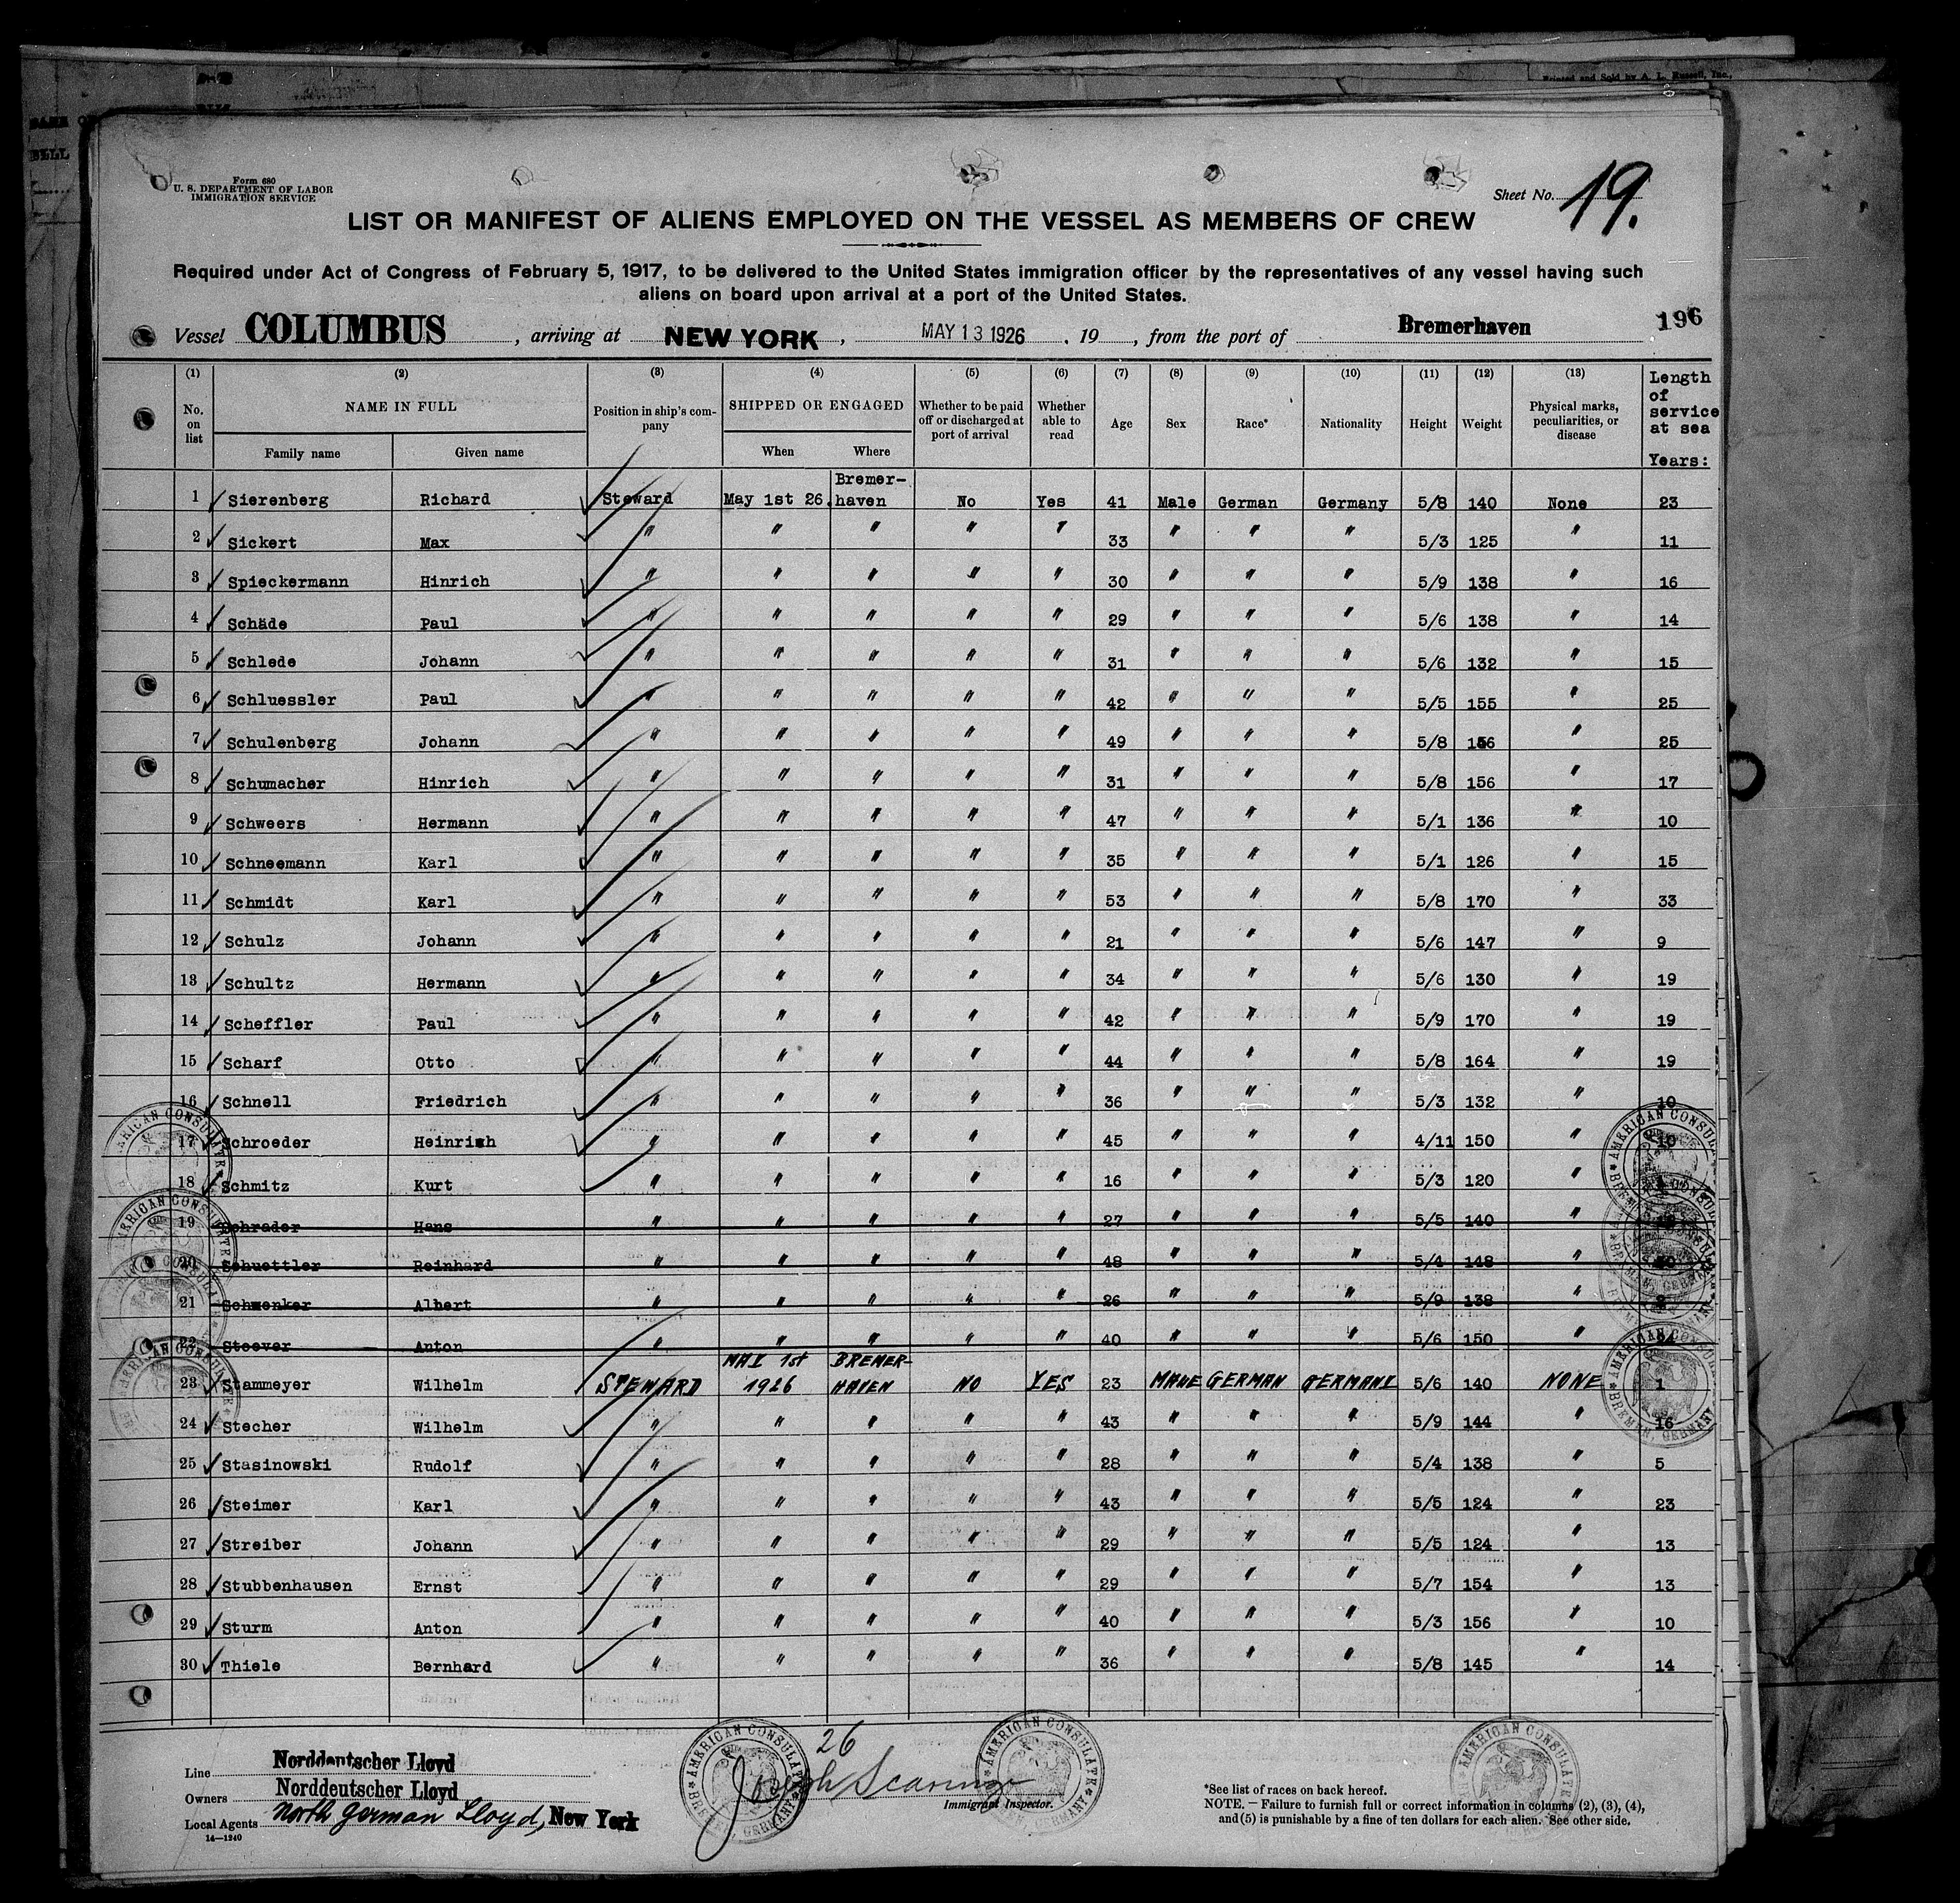 Printed and Sold by A. L. Russell, Inc.,
BELL
Form 680
U. S. DEPARTMENT OF LABOR
IMMIGRATION SERVICE
Sheet No. 19.
LIST OR MANIFEST OF ALIENS EMPLOYED ON THE VESSEL AS MEMBERS OF CREW
Required under Act of Congress of February 5, 1917, to be delivered to the United States immigration officer by the representatives of any vessel having such
aliens on board upon arrival at a port of the United States.
Vessel COLUMBUS, arriving at NEW YORK, MAY 13 1926, 19 , from the port of Bremerhaven 196
(1) (2) (3) (4) (5) (6) (7) (8) (9) (10) (11) (12) (13) Length of service at sea Years:
No. on list NAME IN FULL Position in ship's company SHIPPED OR ENGAGED Whether to be paid off or discharged at port of arrival Whether able to read Age Sex Race* Nationality Height Weight Physical marks, peculiarities, or disease
Family name Given name When Where
1 Sierenberg Richard Steward May 1st 26. Bremer-haven No Yes 41 Male German Germany 5/8 140 None 23
2 Sickert Max " " " " " 33 " " " 5/3 125 " 11
3 Spieckermann Hinrich " " " " " 30 " " " 5/9 138 " 16
4 Schäde Paul " " " " " 29 " " " 5/6 138 " 14
5 Schlede Johann " " " " " 31 " " " 5/6 132 " 15
6 Schluessler Paul " " " " " 42 " " " 5/5 155 " 25
7 Schulenberg Johann " " " " " 49 " " " 5/8 156 " 25
8 Schumacher Hinrich " " " " " 31 " " " 5/8 156 " 17
9 Schweers Hermann " " " " " 47 " " " 5/1 136 " 10
10 Schneemann Karl " " " " " 35 " " " 5/1 126 " 15
11 Schmidt Karl " " " " " 53 " " " 5/8 170 " 33
12 Schulz Johann " " " " " 21 " " " 5/6 147 " 9
13 Schultz Hermann " " " " " 34 " " " 5/6 130 " 19
14 Scheffler Paul " " " " " 42 " " " 5/9 170 " 19
15 Scharf Otto " " " " " 44 " " " 5/8 164 " 19
16 Schnell Friedrich " " " " " 36 " " " 5/3 132 " 10
17 Schroeder Heinrich " " " " " 45 " " " 4/11 150 " 10
18 Schmitz Kurt " " " " " 16 " " " 5/3 120 "
19 Schrader Hans " " " " " 27 " " " 5/5 140 "
20 Schuettler Reinhard " " " " " 48 " " " 5/4 148 "
21 Schwenker Albert " " " " " 26 " " " 5/9 138 "
22 Stoever Anton " " " " " 40 " " " 5/6 150 "
23 Stammeyer Wilhelm STEWARD MAI 1st 1926 BREMER-HAVEN NO YES 23 MALE GERMAN GERMANI 5/6 140 NONE 1
24 Stecher Wilhelm " " " " " 43 " " " 5/9 144 " 16
25 Stasinowski Rudolf " " " " " 28 " " " 5/4 138 " 5
26 Steimer Karl " " " " " 43 " " " 5/5 124 " 23
27 Streiber Johann " " " " " 29 " " " 5/5 124 " 13
28 Stubbenhausen Ernst " " " " " 29 " " " 5/7 154 " 13
29 Sturm Anton " " " " " 40 " " " 5/3 156 " 10
30 Thiele Bernhard " " " " " 36 " " " 5/8 145 " 14
AMERICAN CONSULATE BREMEN, GERMANY
26
Line Norddeutscher Lloyd
Owners Norddeutscher Lloyd
Local Agents North German Lloyd, New York
14—1240
Joseph
Immigrant Inspector.
*See list of races on back hereof.
NOTE. — Failure to furnish full or correct information in columns (2), (3), (4),
and (5) is punishable by a fine of ten dollars for each alien. See other side.